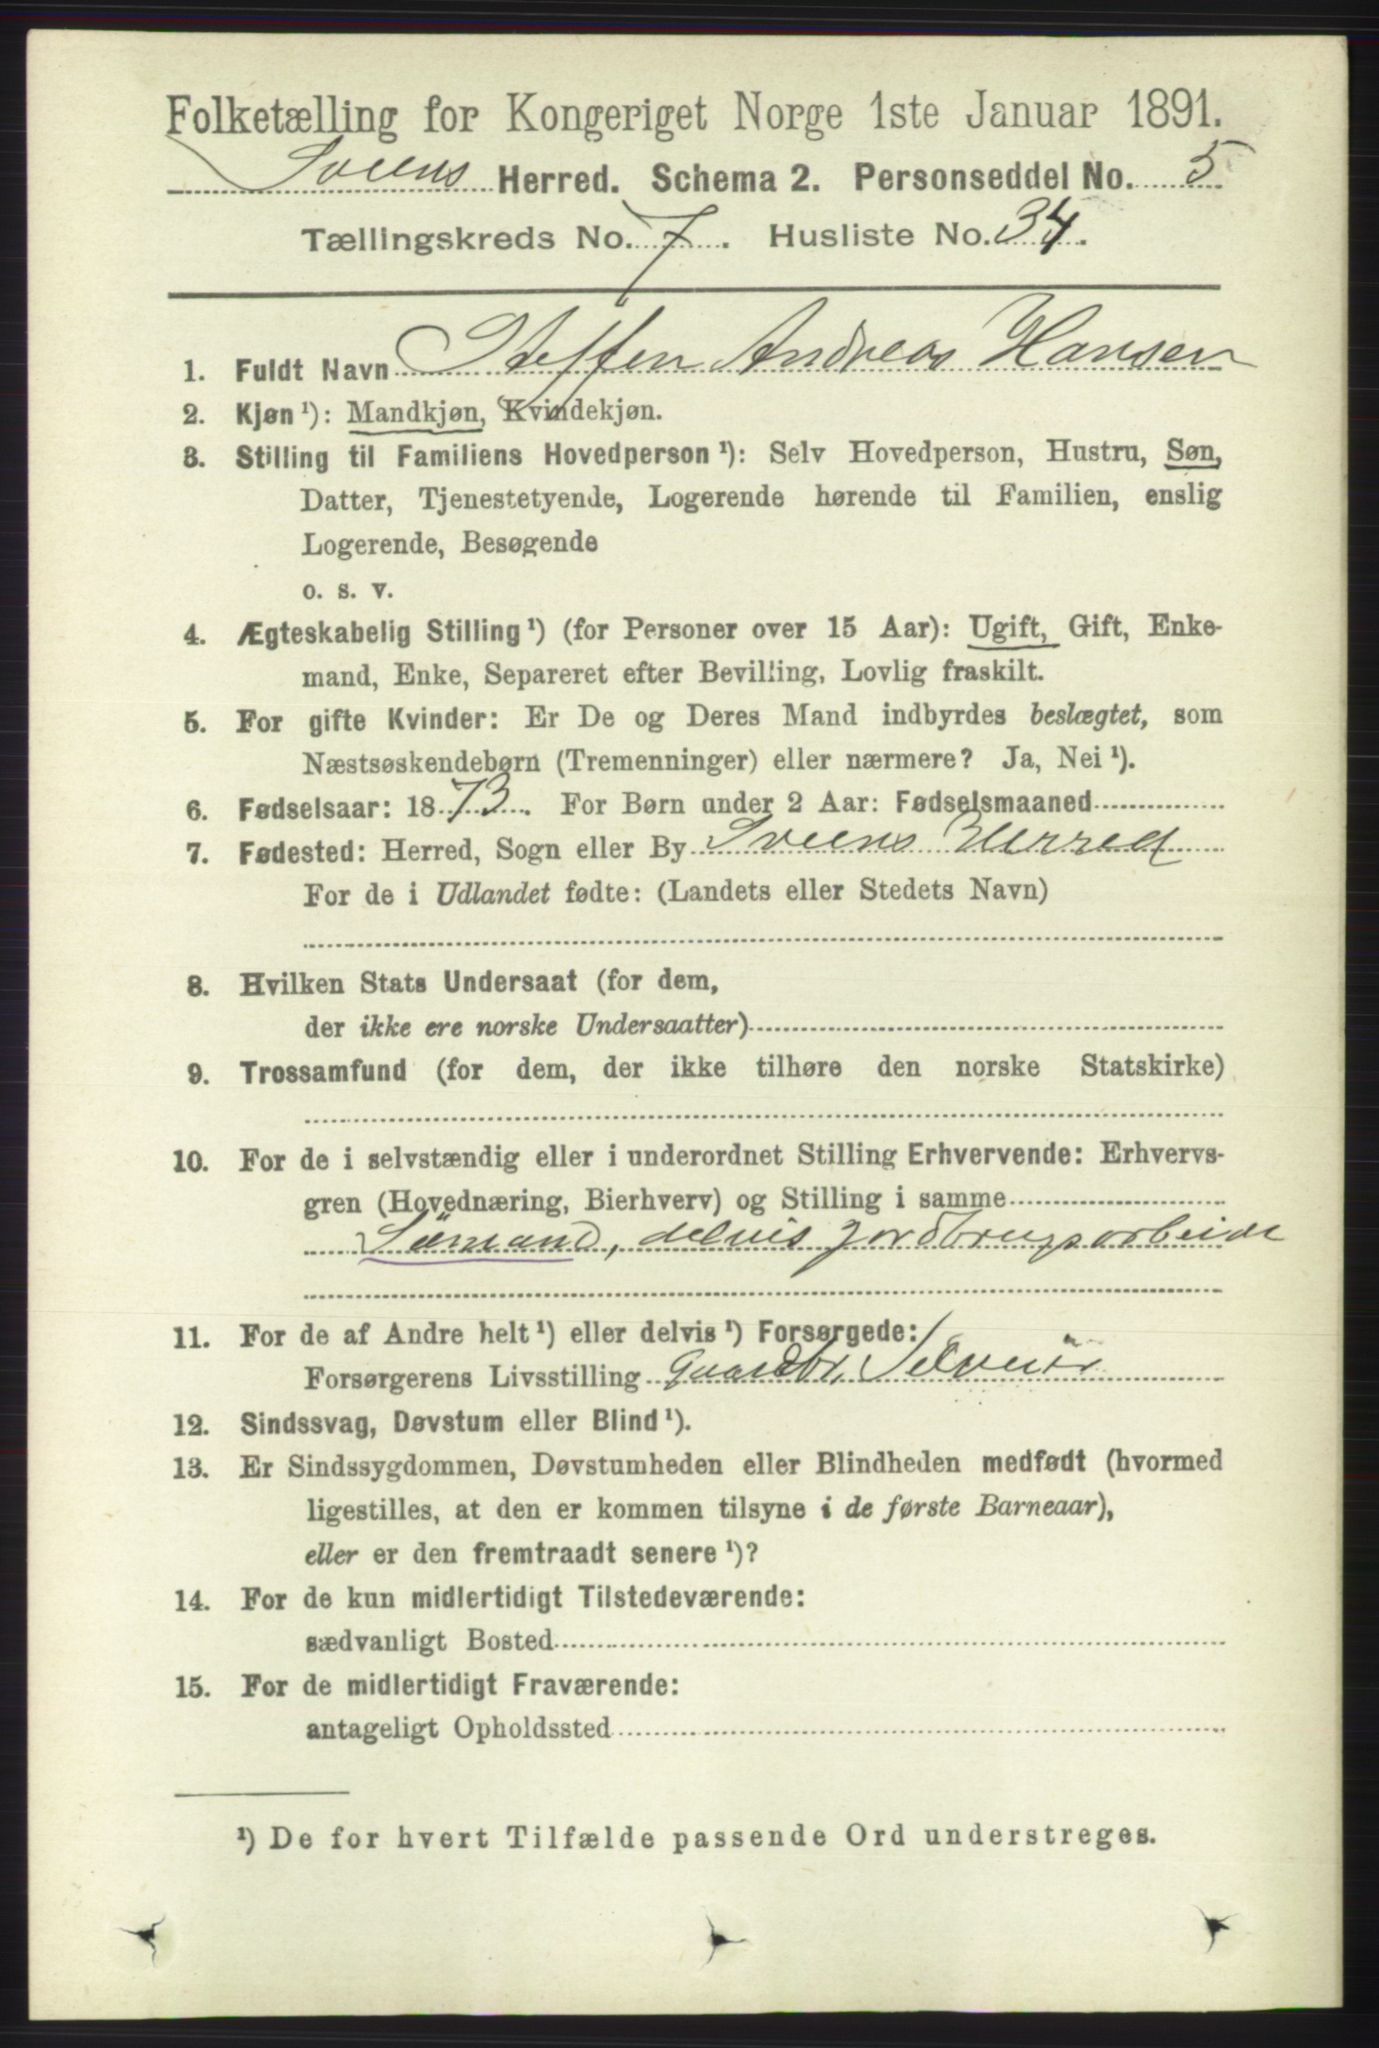 Folketælling for Kongeriget Norge 1ste Januar 1891.
Sveens Herred. Schema 2. Personseddel No. 5
Tællingskreds No. 7. Husliste No. 34.
1. Fuldt Navn Steffen Andreas Hansen
2. Kjøn ¹): Mandkjøn, Kvindekjøn.
3. Stilling til Familiens Hovedperson ¹): Selv Hovedperson, Hustru, Søn,
Datter, Tjenestetyende, Logerende hørende til Familien, enslig
Logerende, Besøgende
o. s. v.
4. Ægteskabelig Stilling ¹) (for Personer over 15 Aar): Ugift, Gift, Enke-
mand, Enke, Separeret efter Bevilling, Lovlig fraskilt.
5. For gifte Kvinder: Er De og Deres Mand indbyrdes beslægtet, som
Næstsøskendebørn (Tremenninger) eller nærmere? Ja, Nei ¹).
6. Fødselsaar: 1873. For Børn under 2 Aar: Fødselsmaaned
7. Fødested: Herred, Sogn eller By Sveens Herred
For de i Udlandet fødte: (Landets eller Stedets Navn)
8. Hvilken Stats Undersaat (for dem,
der ikke ere norske Undersaatter)
9. Trossamfund (for dem, der ikke tilhøre den norske Statskirke)
10. For de i selvstændig eller i underordnet Stilling Erhvervende: Erhvervs-
gren (Hovednæring, Bierhverv) og Stilling i samme
Sömand, delvis jordbrugsarbeide
11. For de af Andre helt ¹) eller delvis ¹) Forsørgede:
Forsørgerens Livsstilling Gaardbr. Selveier
12. Sindssvag, Døvstum eller Blind ¹).
13. Er Sindssygdommen, Døvstumheden eller Blindheden medfødt (hvormed
ligestilles, at den er kommen tilsyne i de første Barneaar),
eller er den fremtraadt senere ¹)?
14. For de kun midlertidigt Tilstedeværende:
sædvanligt Bosted
15. For de midlertidigt Fraværende:
antageligt Opholdssted
¹) De for hvert Tilfælde passende Ord understreges.